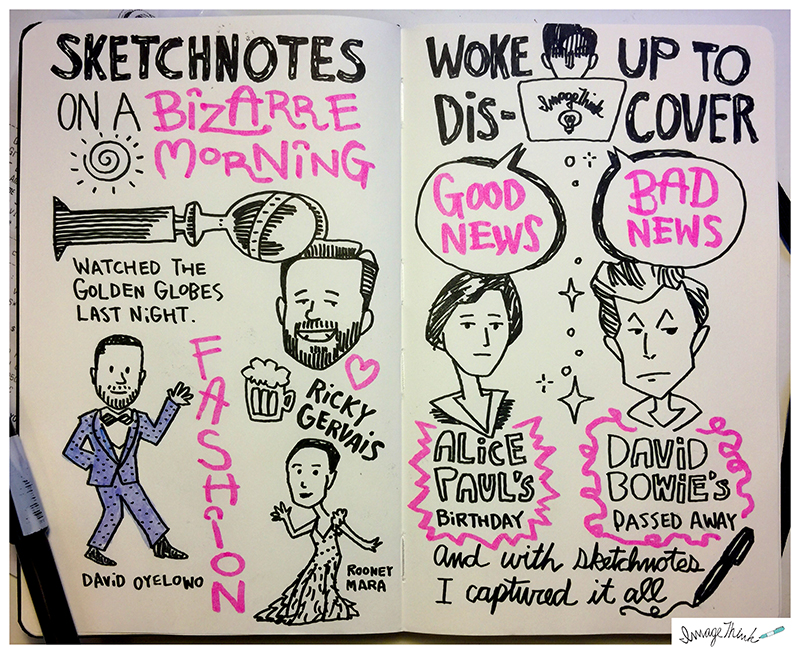 SKETCHNOTES
ON A BIZARRE
MORNING
WATCHED THE
GOLDEN GLOBES
LAST NIGHT.
RICKY
GERVAIS
FASHION
DAVID OYELOWO
ROONEY
MARA
WOKE UP TO
DIS- COVER
ImageThink
GOOD
NEWS
BAD
NEWS
ALICE
PAUL'S
BIRTHDAY
DAVID
BOWIE'S
PASSED AWAY
And with sketchnotes
I captured it all
ImageThink